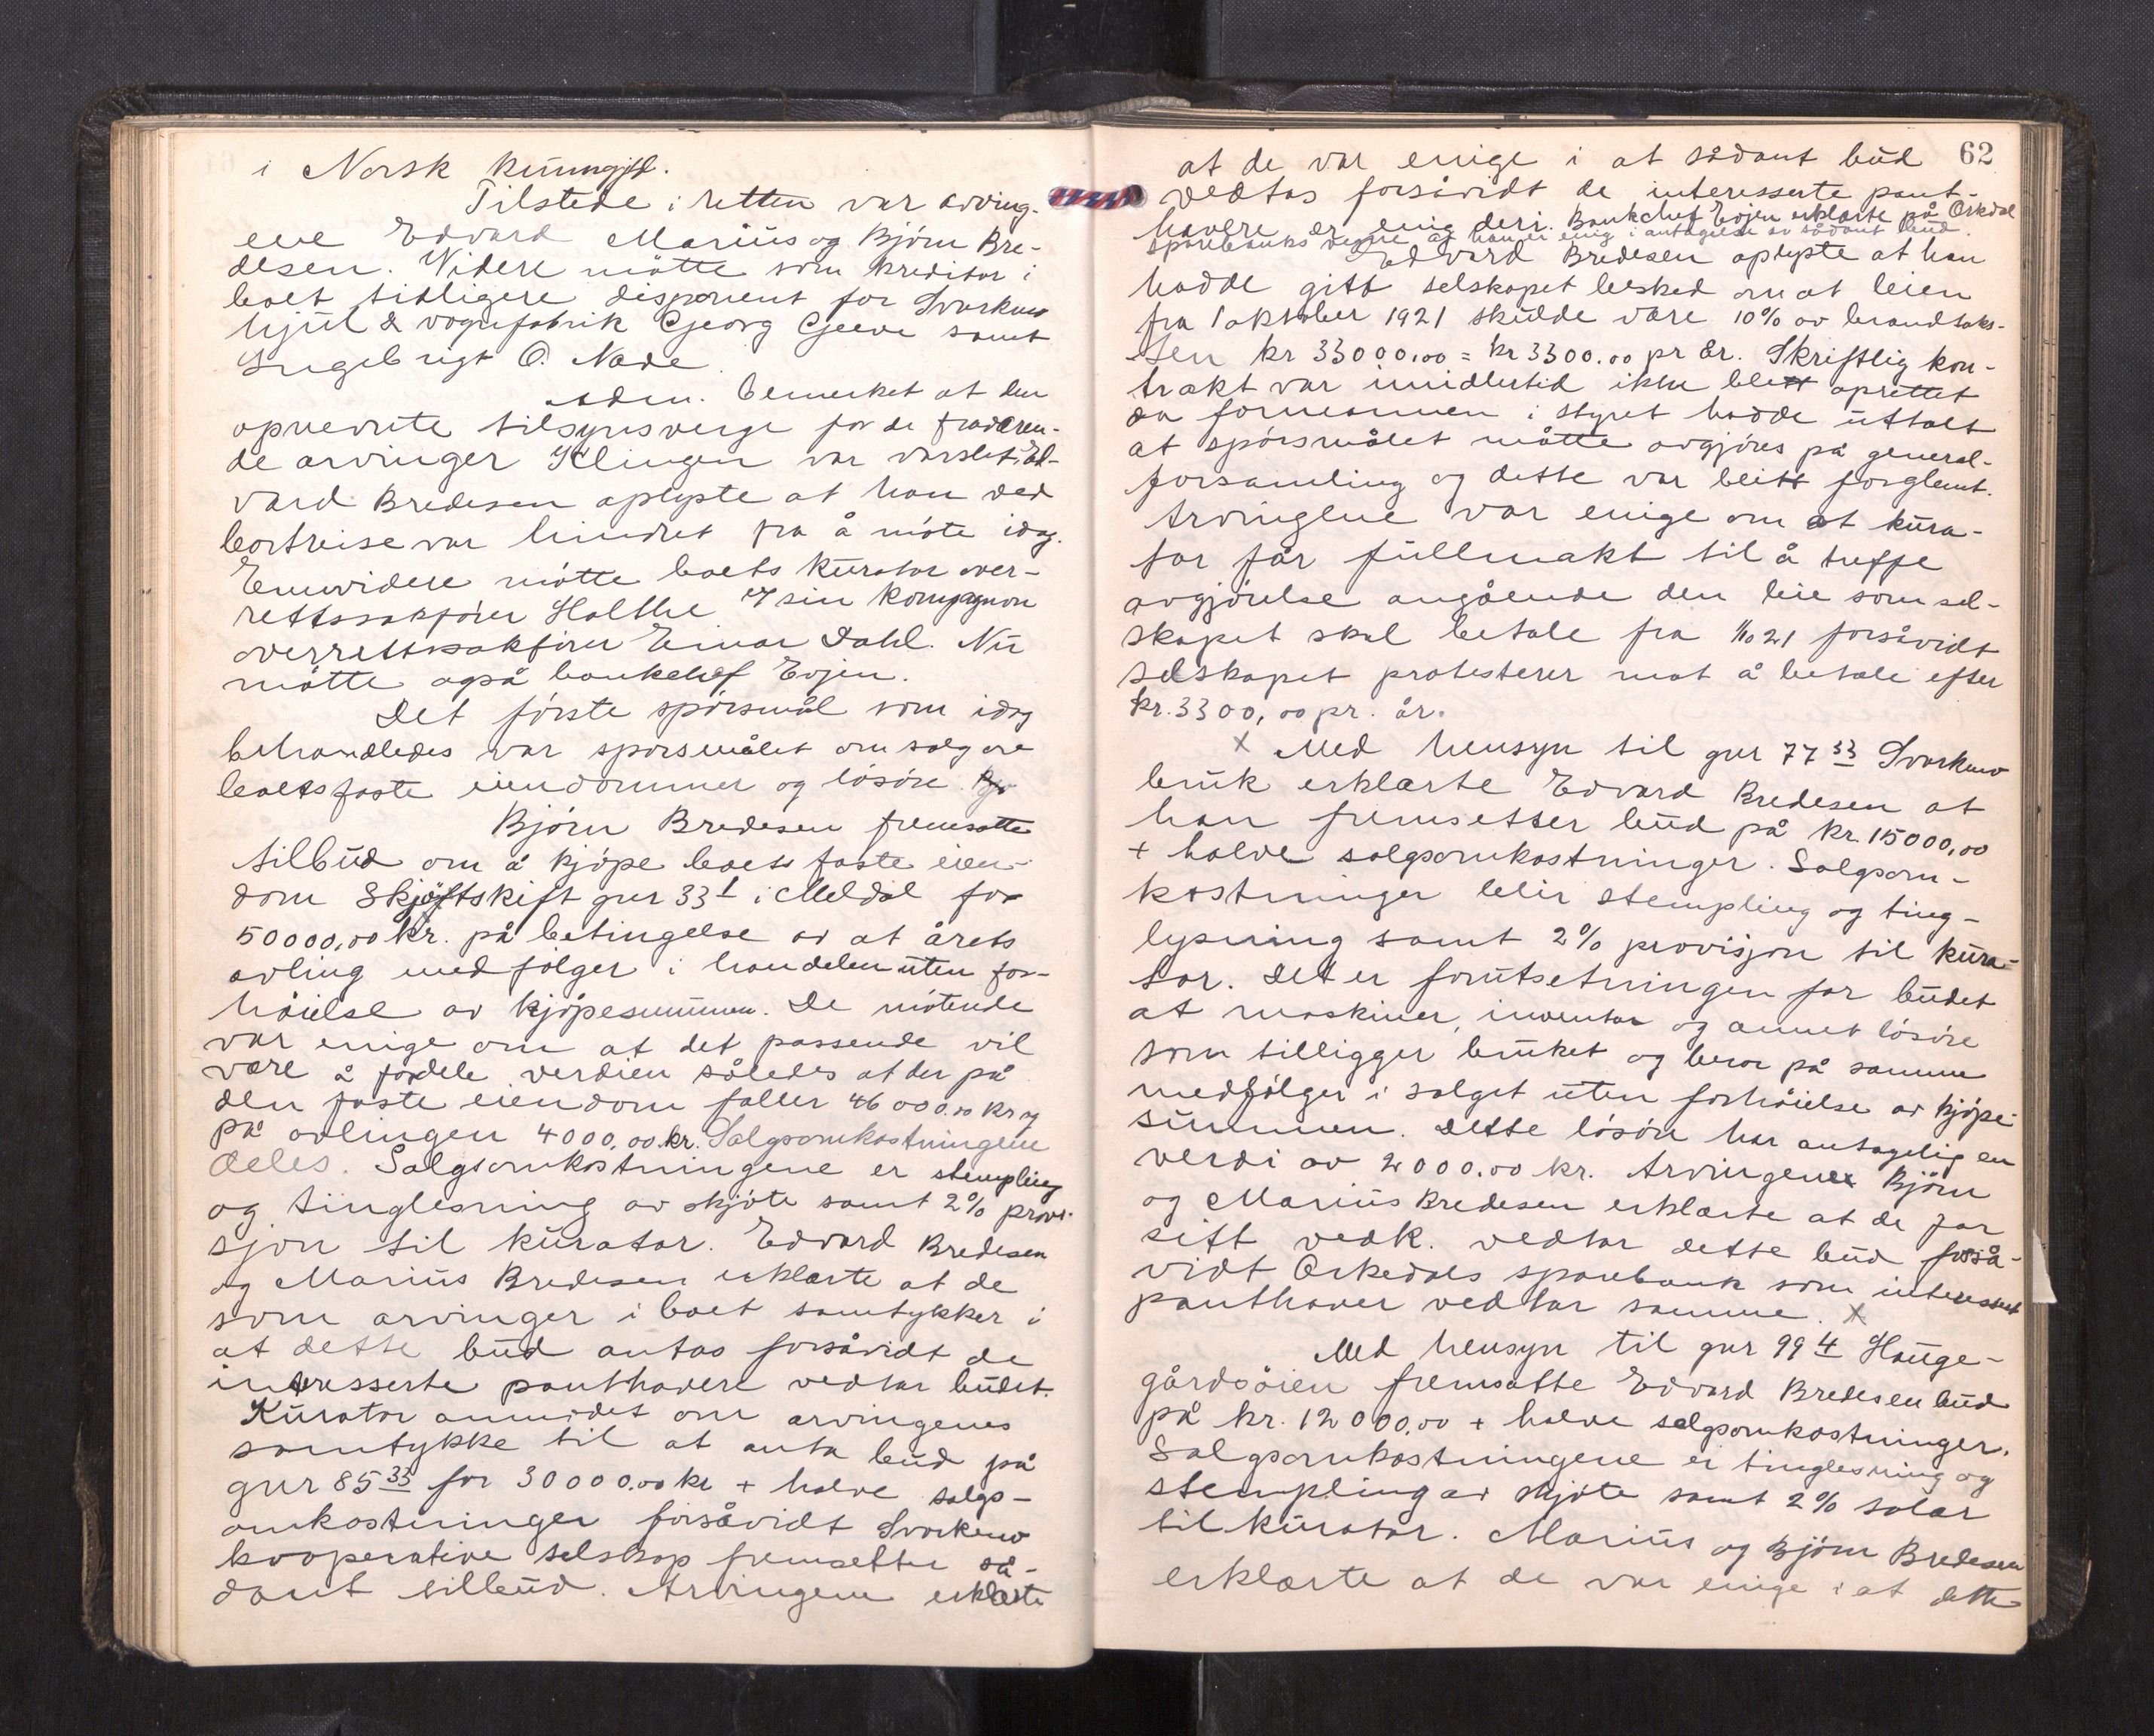 i Norsk kunngjtd.
Tilstede i retten var arving-
ene Edvard Marius og Bjørn Bre-
desen. Videre møtte som kreditor i
boet tidligere disponent for Svorkmo
hjul & vognfabrik Georg Greve samt
Ingebrigt O. Nade.
adm. bemerket at den
opnevnte tilsynsverge for de fraværen-
de arvinger Klingen var varslet. Ed-
vard Bredesen oplyste at han ved
bortreise var hindret fra å møte idag.
Ennvidere møtte boets kurator over-
rettssakfører Holthe og sin kompagnon
overrettssakfører Einar Dahl. Nu
møtte også bankchef Evjen.
Det første spørsmål som idag
behandledes var spørsmålet om salg av
boets faste eiendommer og løsøre.
Bjørn Bredesen fremsatte
tilbud om å kjøpe boets faste eien-
dom Skjøftskift gnr 33 1 i Meldal for
50000,00 kr. på betingelse av at årets
avling medfølger i handelen uten for-
høielse av kjøpesummen. De møtende
var enige om at det passende vil
være å fordele verdien således at der på
den faste eiendom faller 46000.00 kr og
på avlingen 4000,00 kr. Salgsomkostningene
deles. Salgsomkostningene er stempling
og tinglesning av skjøte samt 2% provi-
sjon til kurator. Edvard Bredesen
og Marius Bredesen erklærte at de
som arvinger i boet samtykker i
at dette bud antas forsåvidt de
interesserte panthavere vedtar budet.
Kurator anmodet om arvingenes
samtykke til at anta bud på
gnr 85 33 for 30000.00 kr + halve salgs-
omkostninger forsåvidt Svorkmo
kooperative selskap fremsetter så-
dant tilbud. Arvingene erklærte
62
at de var enige i at sådant bud
vedtas forsåvidt de interesserte pant-
havere er enig deri. Bankchef Evjen erklærte på Orkdal
sparebanks vegne at han er enig i antagelse av sådant bud.
Edvard Bredesen oplyste at han
hadde gitt selskapet besked om at leien
fra 1 oktober 1921 skulde være 10% av brandtaks-
ten kr 33000,00 = kr 3300.00 pr år. Skriftlig kon-
trakt var imidlertid ikke blett oprettet
da formannen i styret hadde uttalt
at spørsmålet måtte avgjøres på general-
forsamling og dette var blitt forglemt.
Arvingene var enige om at kura-
tor får fullmakt til å treffe
avgjørelse angående den leie som sel-
skapet skal betale fra 1/10 21 forsåvidt
selskapet protesterer mot å betale efter
kr. 3300,00 pr. år.
x Med hensyn til gnr 77 33 Svorkmo
bruk erklærte Edvard Bredesen at
han fremsetter bud på kr. 15000,00
+ halve salgsomkostninger. Salgsom-
kostninger blir stempling og ting-
lysning samt 2% provisjon til kura-
tor. Det er forutsetningen for budet
at maskiner, inventar og annet løsøre
som tilligger bruket og beror på samme
medfølger i salget uten forhøielse av kjøpe-
summen. Dette løsøre har antagelig en
verdi av 2000.00 kr. Arvingene Bjørn
og Marius Bredesen erklærte at de for
sitt vedk. vedtar dette bud forså-
vidt Orkedals sparebank som interessert
panthaver vedtar samme. x
Med hensyn til gnr 99 4 Hauge-
gårdsøien fremsatte Edvard Bredesen bud
på kr. 12000,00 + halve salgsomkostninger.
Salgsomkostningene er tinglesning og
stempling av skjøte samt 2% salær
til kurator. Marius og Bjørn Bredesen
erklærte at de var enige i at dette